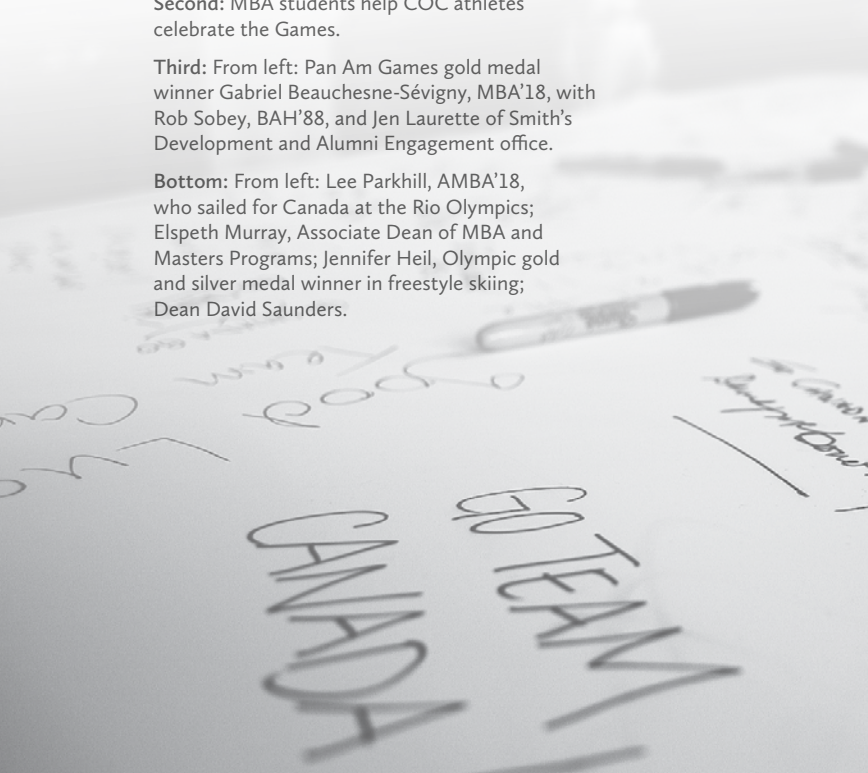 Second: MBA students help COC athletes
celebrate the Games.
Third: From left: Pan Am Games gold medal
winner Gabriel Beauchesne-Sévigny, MBA’18, with
Rob Sobey, BAH’88, and Jen Laurette of Smith’s
Development and Alumni Engagement office.
Bottom: From left: Lee Parkhill, AMBA’18,
who sailed for Canada at the Rio Olympics;
Elspeth Murray, Associate Dean of MBA and
Masters Programs; Jennifer Heil, Olympic gold
and silver medal winner in freestyle skiing;
Dean David Saunders.
Good Luck
Team
GO TEAM
CANADA